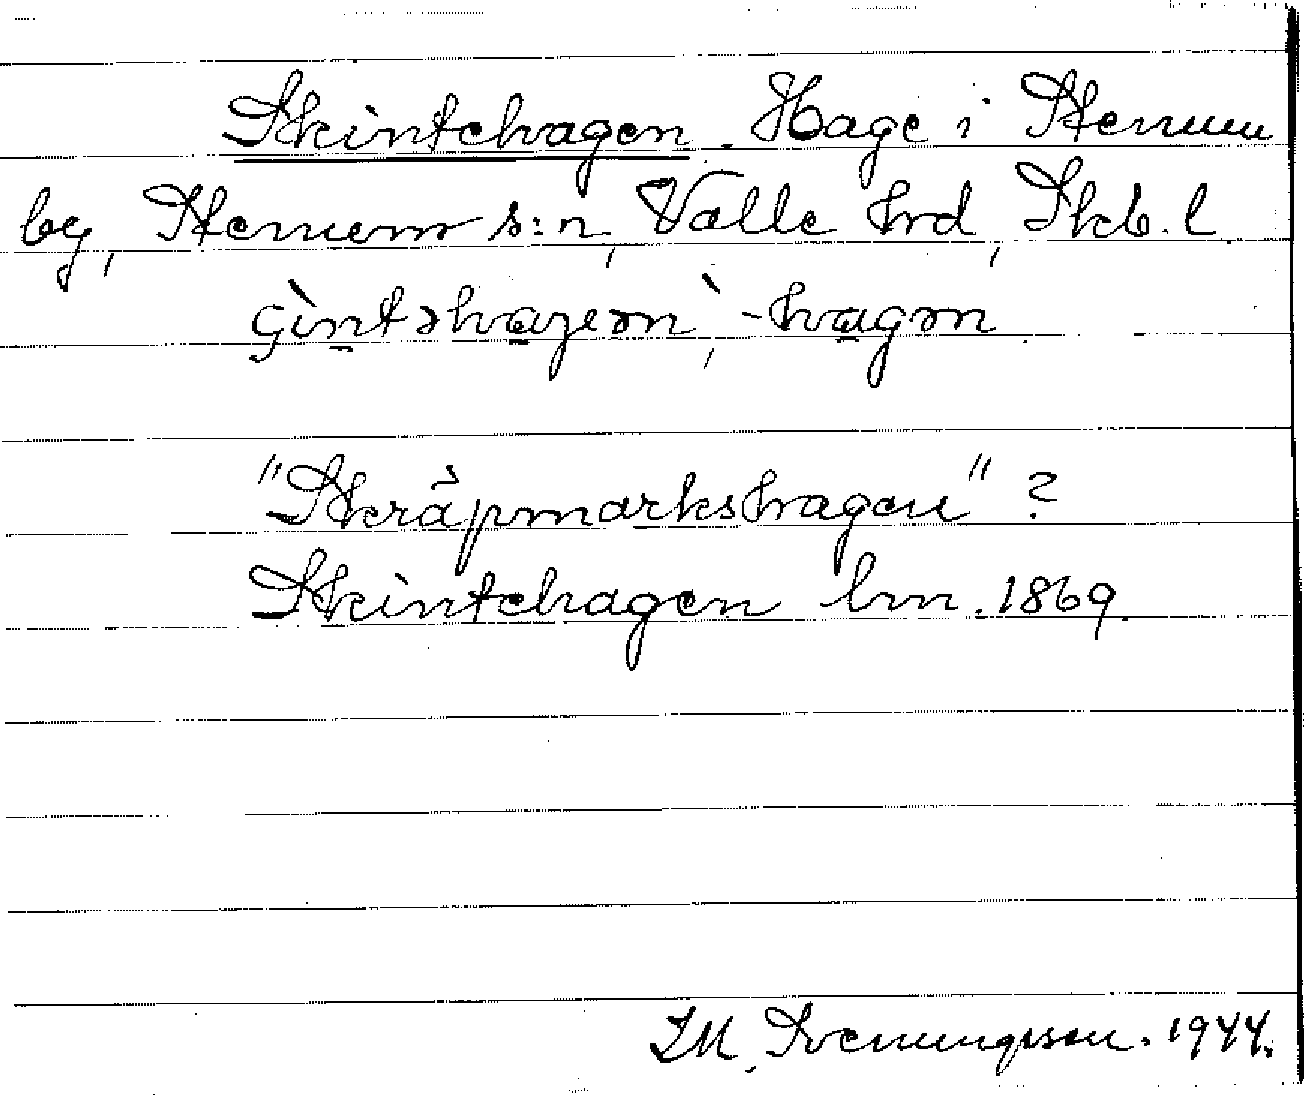 Skintehagen. Hage i Stenum
by, Stenum s:n, Valle hrd, Skb. l.
çìntəhaɡen, -hagən
"Skräpmarkshagen" ?
Skintehagen lm. 1869.
I M, Svenungsson. 1944.